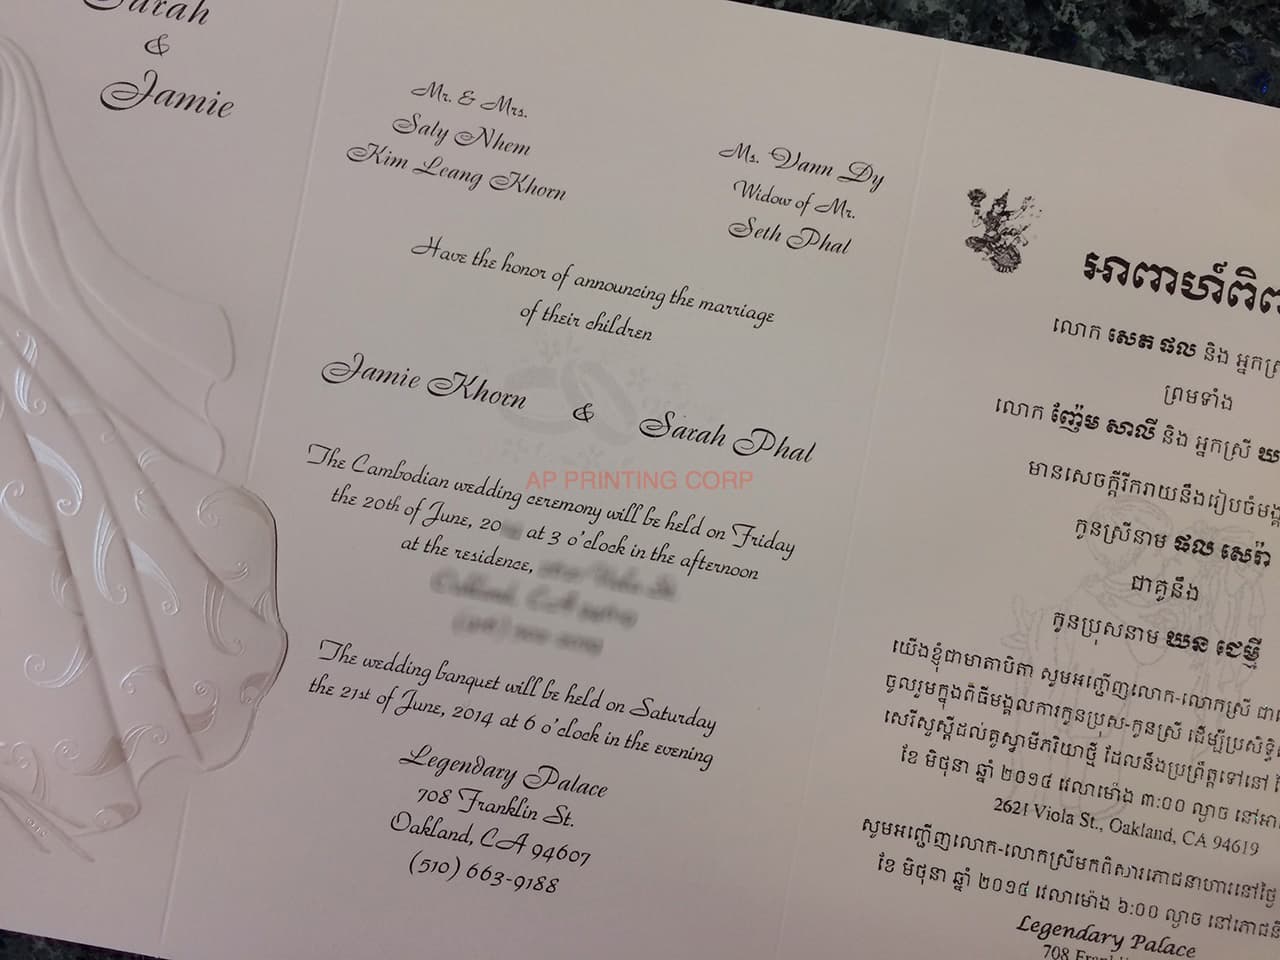 Sarah
&
Jamie
Mr. & Mrs.
Saly Nhem
Kim Leang Khorn
Ms. Vann Dy
Widow of Mr.
Seth Phal
Have the honor of announcing the marriage
of their children
Jamie Khorn & Sarah Phal
AP PRINTING CORP
The Cambodian wedding ceremony will be held on Friday
the 20th of June, 20 at 3 o'clock in the afternoon
at the residence,
The wedding banquet will be held on Saturday
the 21st of June, 2014 at 6 o'clock in the evening
Legendary Palace
708 Franklin St.
Oakland, CA 94607
(510) 663-9188
លោក សេត ផល និង អ្នកស្រី
ព្រមទាំង
លោក ញ៉ែម សាលី និង អ្នកស្រី
មានសេចក្តីរីករាយនឹងរៀបចំមង្គ
កូនស្រីនាម ផល សេរ៉ា
ជាគូនឹង
កូនប្រុសនាម ឃន ជេម្មី
យើងខ្ញុំជាមាតាបិតា សូមអញ្ជើញលោក-លោកស្រី
ចូលរួមក្នុងពិធីមង្គលការកូនប្រុស-កូនស្រី ដើម្បីប្រសិទ្ធិ
សេរីសួស្តីដល់គូស្វាមីភរិយាថ្មី ដែលនឹងប្រព្រឹត្តទៅនៅ
ខែ មិថុនា ឆ្នាំ ២០១៤ វេលាម៉ោង ៣:០០ ល្ងាច
2621 Viola St., Oakland, CA 94619
សូមអញ្ជើញលោក-លោកស្រីមកពិសារភោជនាហារនៅថ្ងៃ
ខែ មិថុនា ឆ្នាំ ២០១៤ វេលាម៉ោង ៦:០០ ល្ងាច នៅភោជនី
Legendary Palace